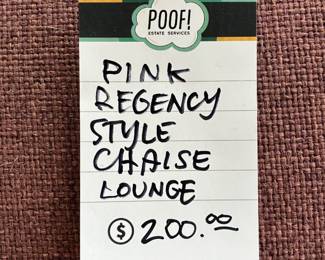 POOF!
ESTATE SERVICES
PINK
REGENCY
STYLE
CHAISE
LOUNGE
$ 200.00